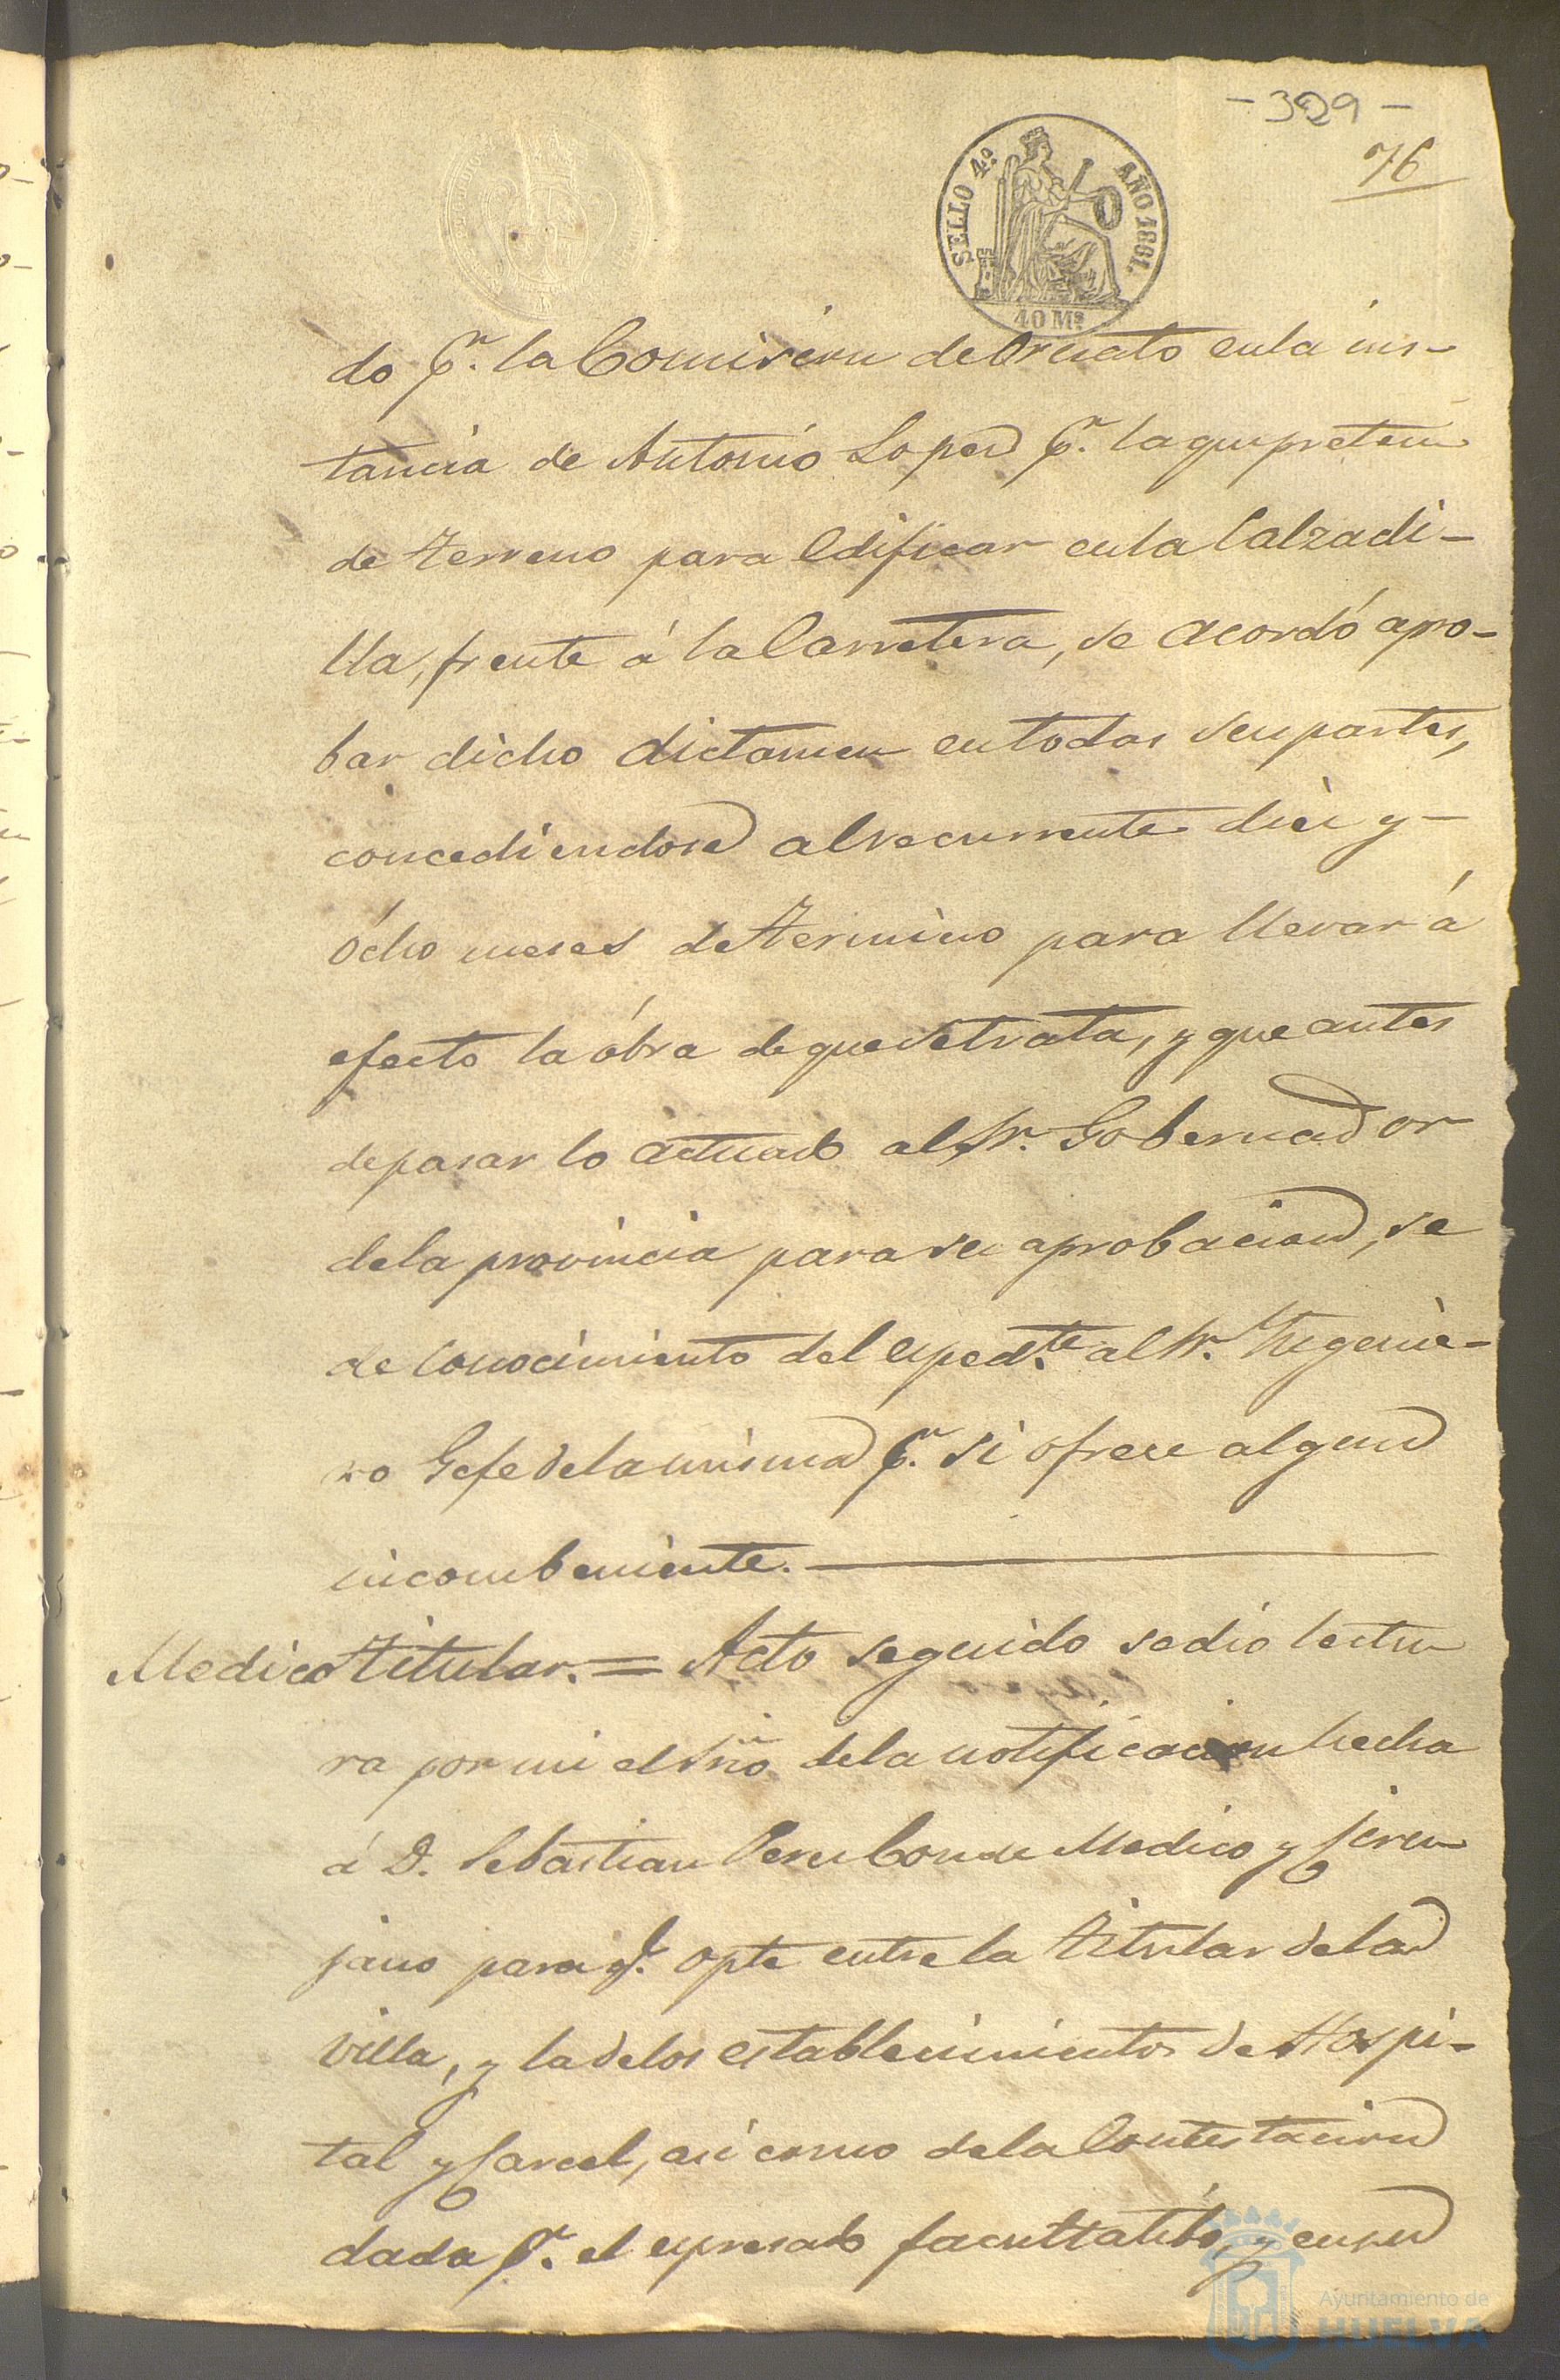 - 329 -
76
SELLO 4º. AÑO 1861.
40 Ms
do pr. la Comision de Ornato en la ins-
tancia de Antonio Lopez pr. la que preten
de terreno para edificar en la Calzadi-
lla, frente á la Carretera, se acordó apro-
bar dicho dictamen en todas sus partes,
concediendose al recurrente diez y-
ócho meses de termino para llevar á
efecto la óbra de que se trata, y que antes
de pasar lo actuado al Sr. Gobernador
de la provincia para su aprobacion, se
de conocimiento del esped.te al Sr. Ingenie-
ro Gefe de la misma pr. si ofrece algun
incombeniente.
Medico Titular. = Acto seguido se dio lectu
ra por mi el Srio de la notificacion hecha
á D. Sebastian Perez Conde Medico y Ciru
jano para q.e opte entre la Titular de la
villa, y la de los establecimientos de Hospi-
tal y Carcel, asi como de la Contestacion
dada pr. el espresado facultatibo, y en su
Ayuntamiento de
HUELVA